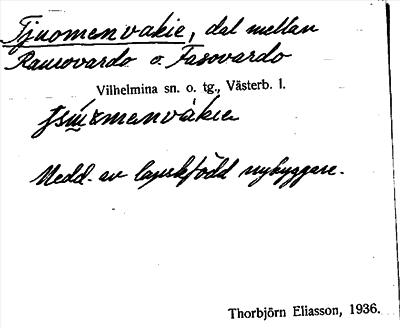 Tjuomenvakie, dal mellan
Raurovardo o. Fasovardo
Vilhelmina sn. o. tg., Västerb. l.
Medd. av lapskfödd nybyggare.
Thorbjörn Eliasson, 1936.